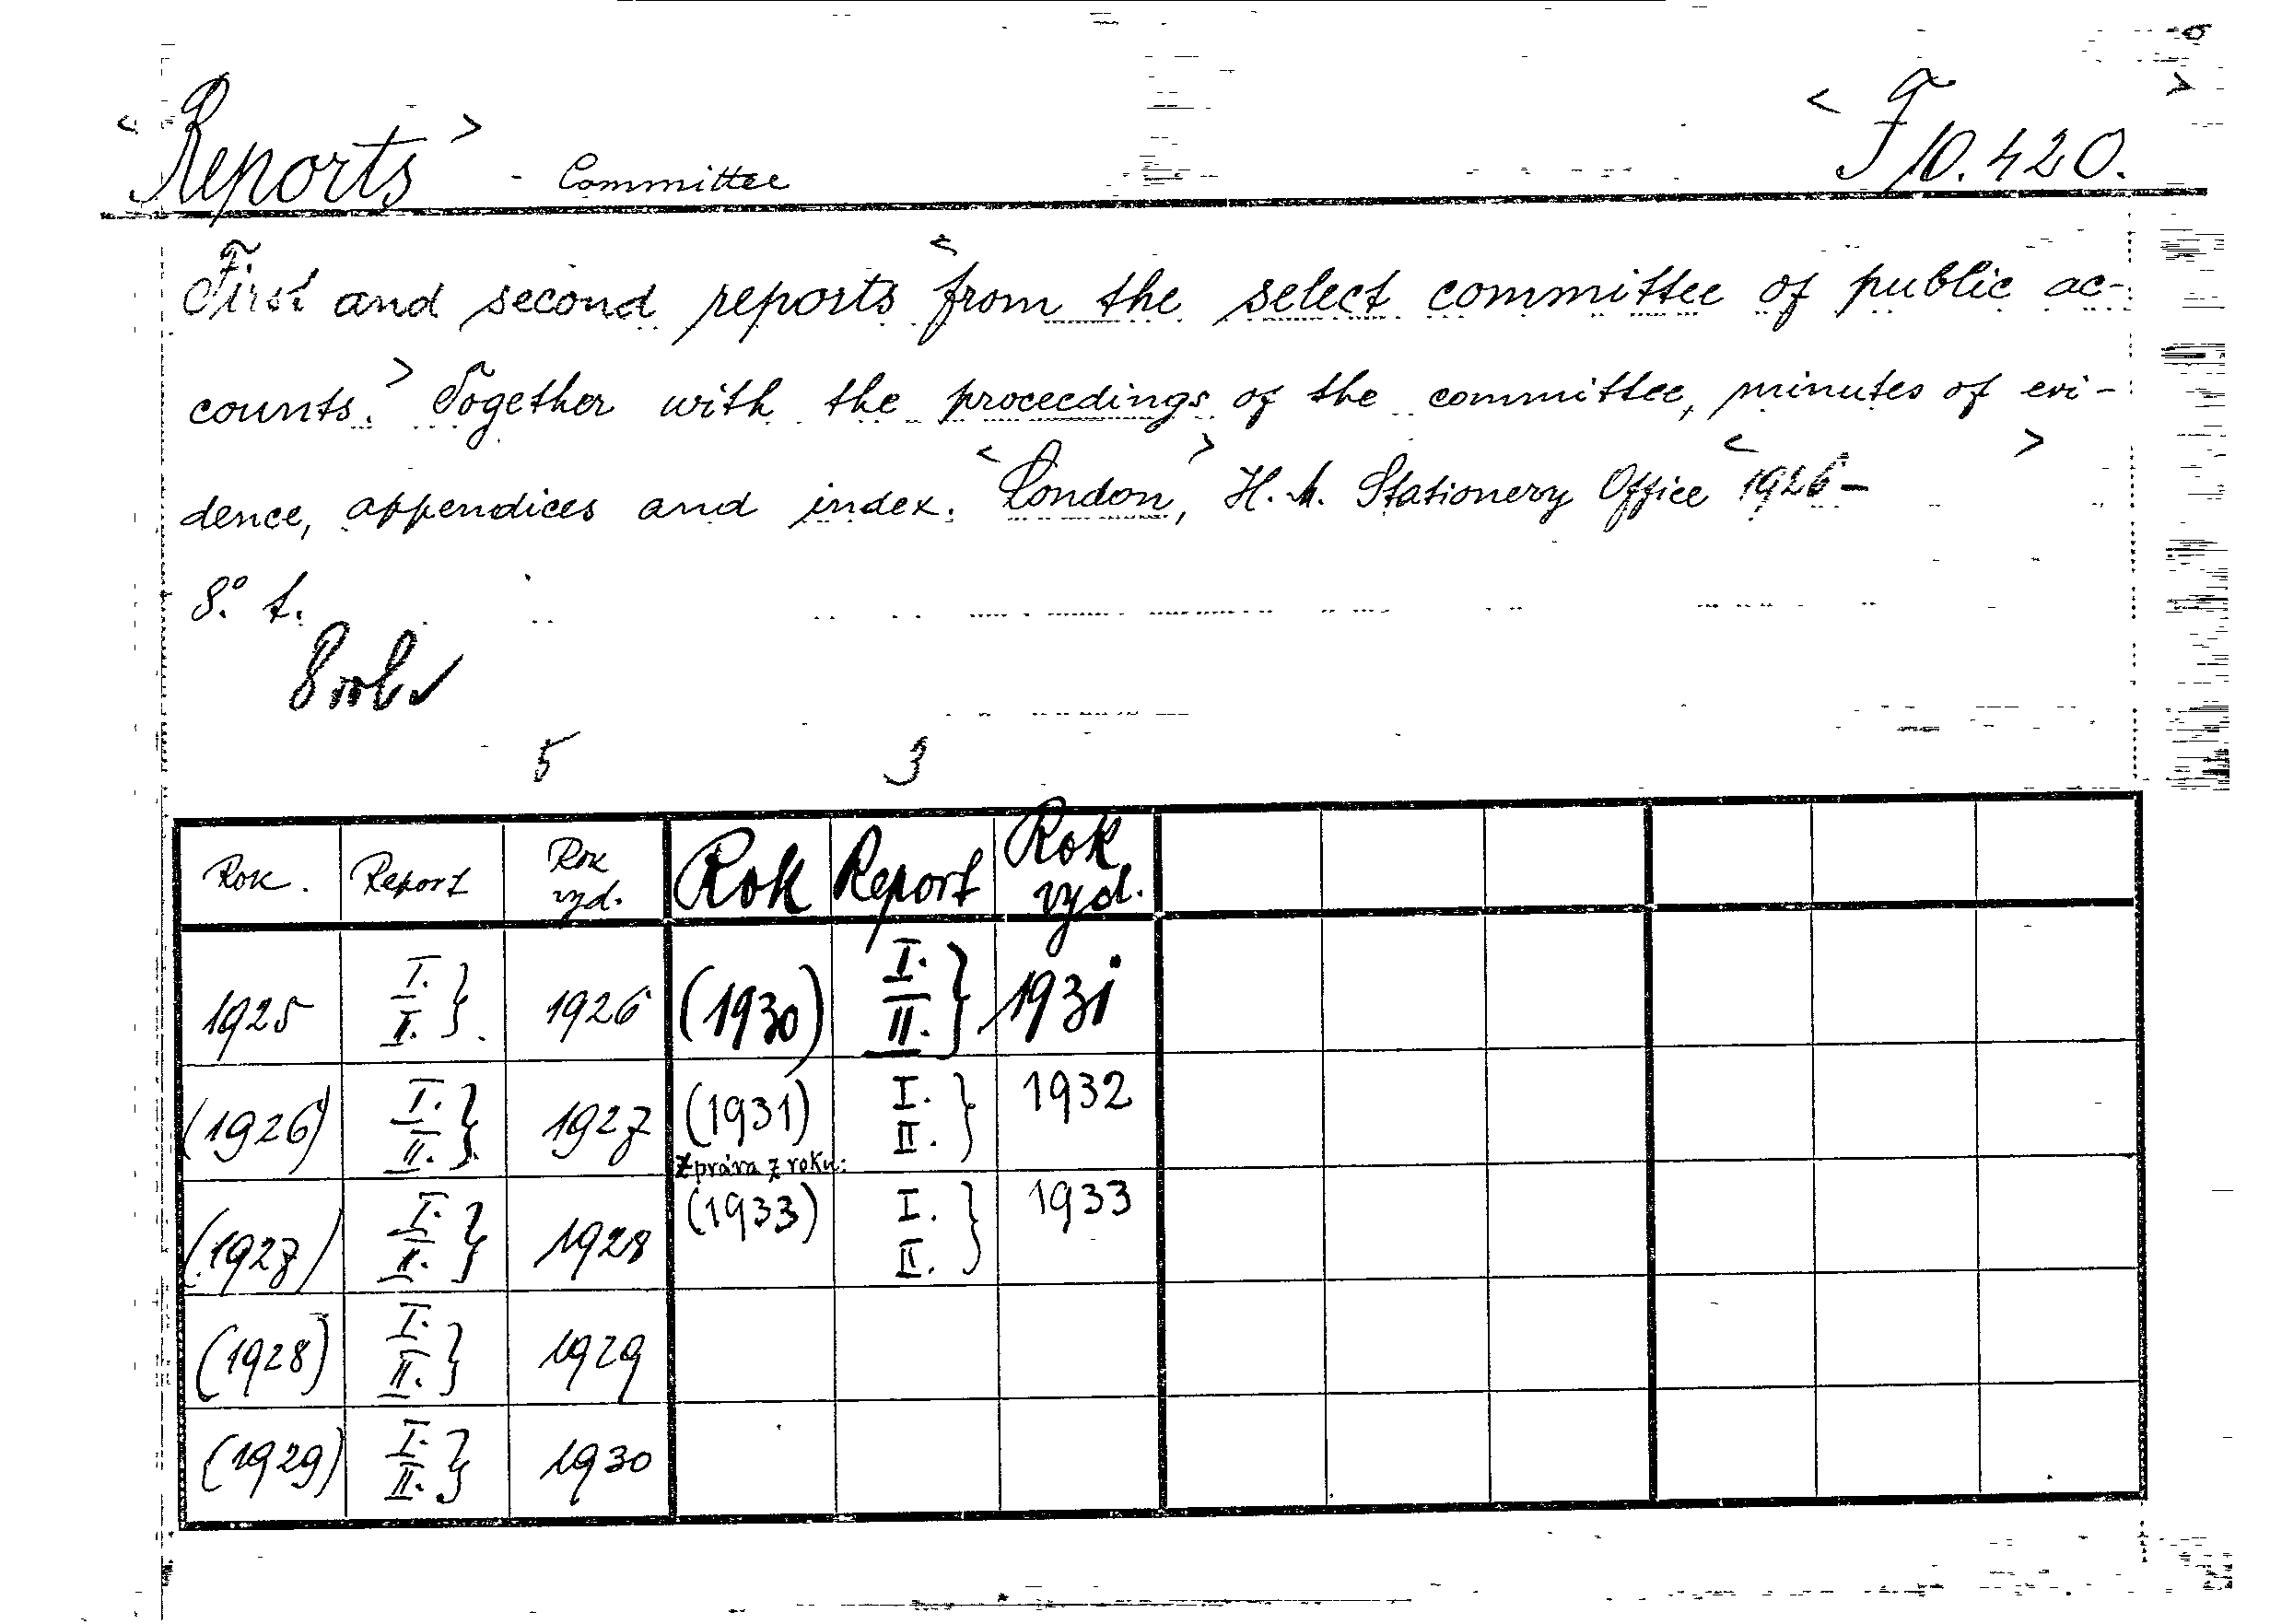 < Reports > - Committee < F 10.420. >
First and second reports < from the select committee of public ac-
counts. > Together with the proceedings of the committee, minutes of evi-
dence, appendices and index. < London, > H. M. Stationery Office < 1926 - >
8° t.
5 3
Rok. Report Rok vyd. Rok Report Rok vyd.
1925 I. II. } 1926 (1930) I. II. } 1931
(1926) I. II. } 1927 (1931) I. II. } 1932
Zpráva z roku:
(1927) I. II. } 1928 (1933) I. II. } 1933
(1928) I. II. } 1929
(1929) I. II. } 1930